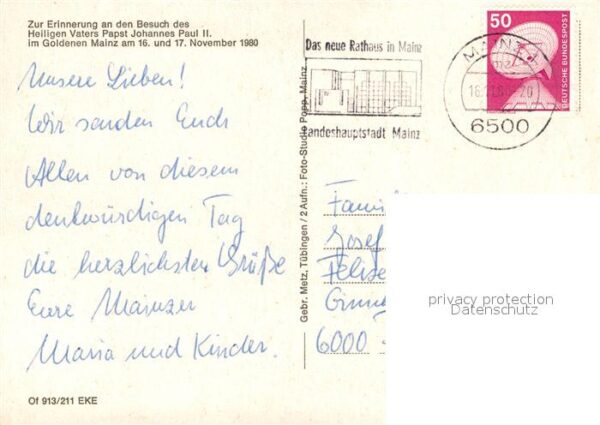 Zur Erinnerung an den Besuch des
Heiligen Vaters Papst Johannes Paul II.
im Goldenen Mainz am 16. und 17. November 1980
Unsere Lieben!
Wir senden Euch
Allen von diesem
denkwürdigen Tag
die herzlichsten Grüße
Eure Mainzer
Maria und Kinder.
Of 913/211 EKE
Gebr. Metz, Tübingen / 2 Aufn.: Foto-Studio Popp, Mainz
Das neue Rathaus in Mainz
Landeshauptstadt Mainz
MAINZ
6500
50
DEUTSCHE BUNDESPOST
Josef
6000
privacy protection
Datenschutz